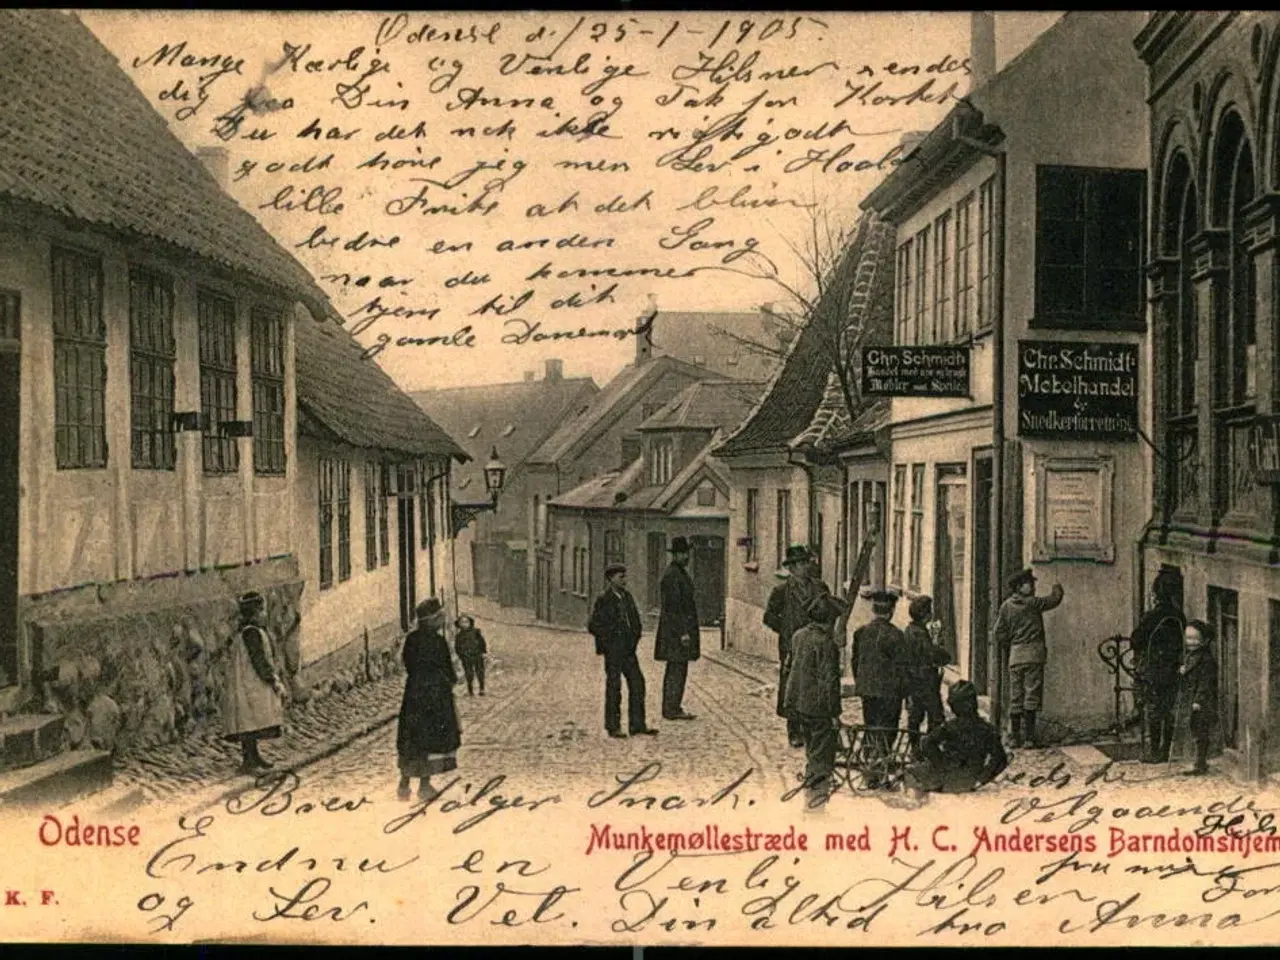 Odense d. /25-1-1905.
Mange Kærlige og Venlige Hilsner sendes
dig fra Din Anna og Tak for Kortet
Du har det nok ikke rigtigodt
godt höre jeg men Lev i Haab
lille Frits at det bliver
bedre en anden Gang
naar du kommer
hjem til dit
gamle Danemark
Chr. Schmidt
Handel med nye og brugte
Møbler
Chr. Schmidt
Møbelhandel
&
Snedkerforretning
Brev følger Snart. Jeg er bedste
Velgaaende
Odense
Munkemøllestræde med H. C. Andersens Barndomshjem
Endnu en Venlig Hilsen
K. F.
og Lev. Vel. Din altid tro Anna